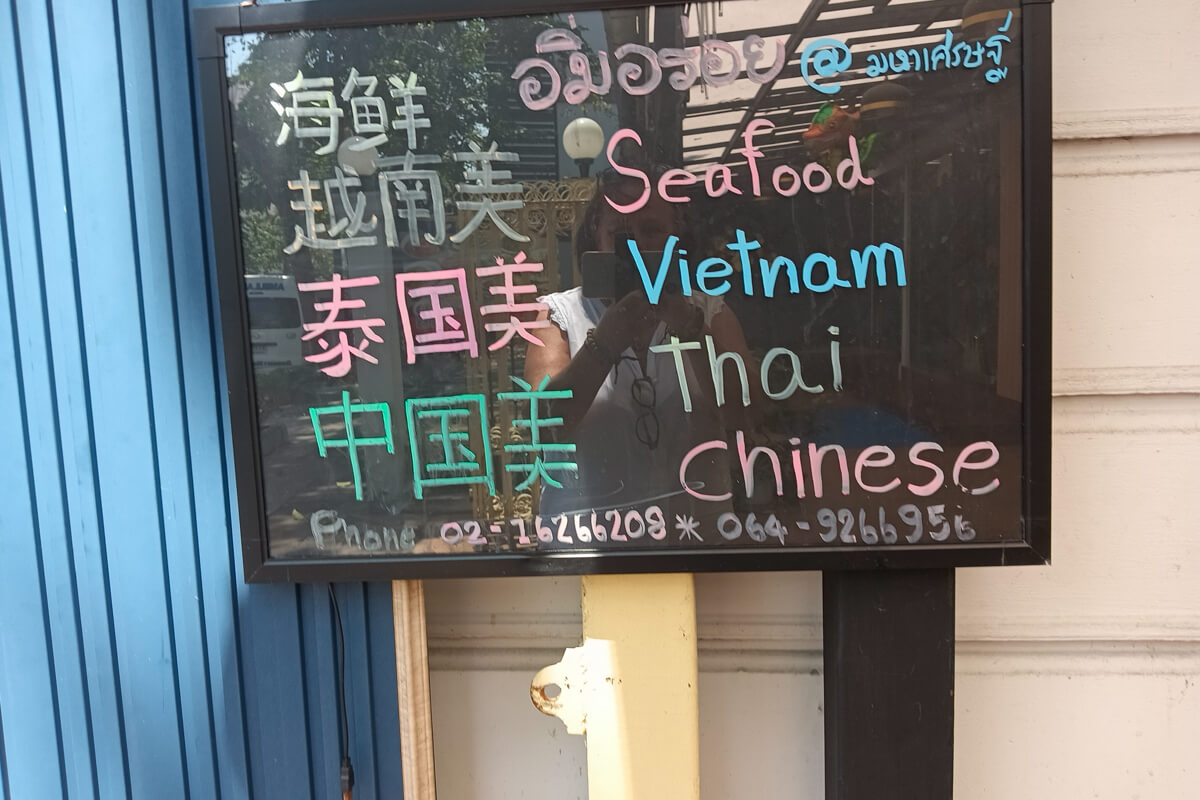 อิ่มอร่อย @ มหาเศรษฐี
海鲜 Seafood
越南美 Vietnam
泰国美 Thai
中国美 Chinese
Phone 02-16266208 * 064-9266956